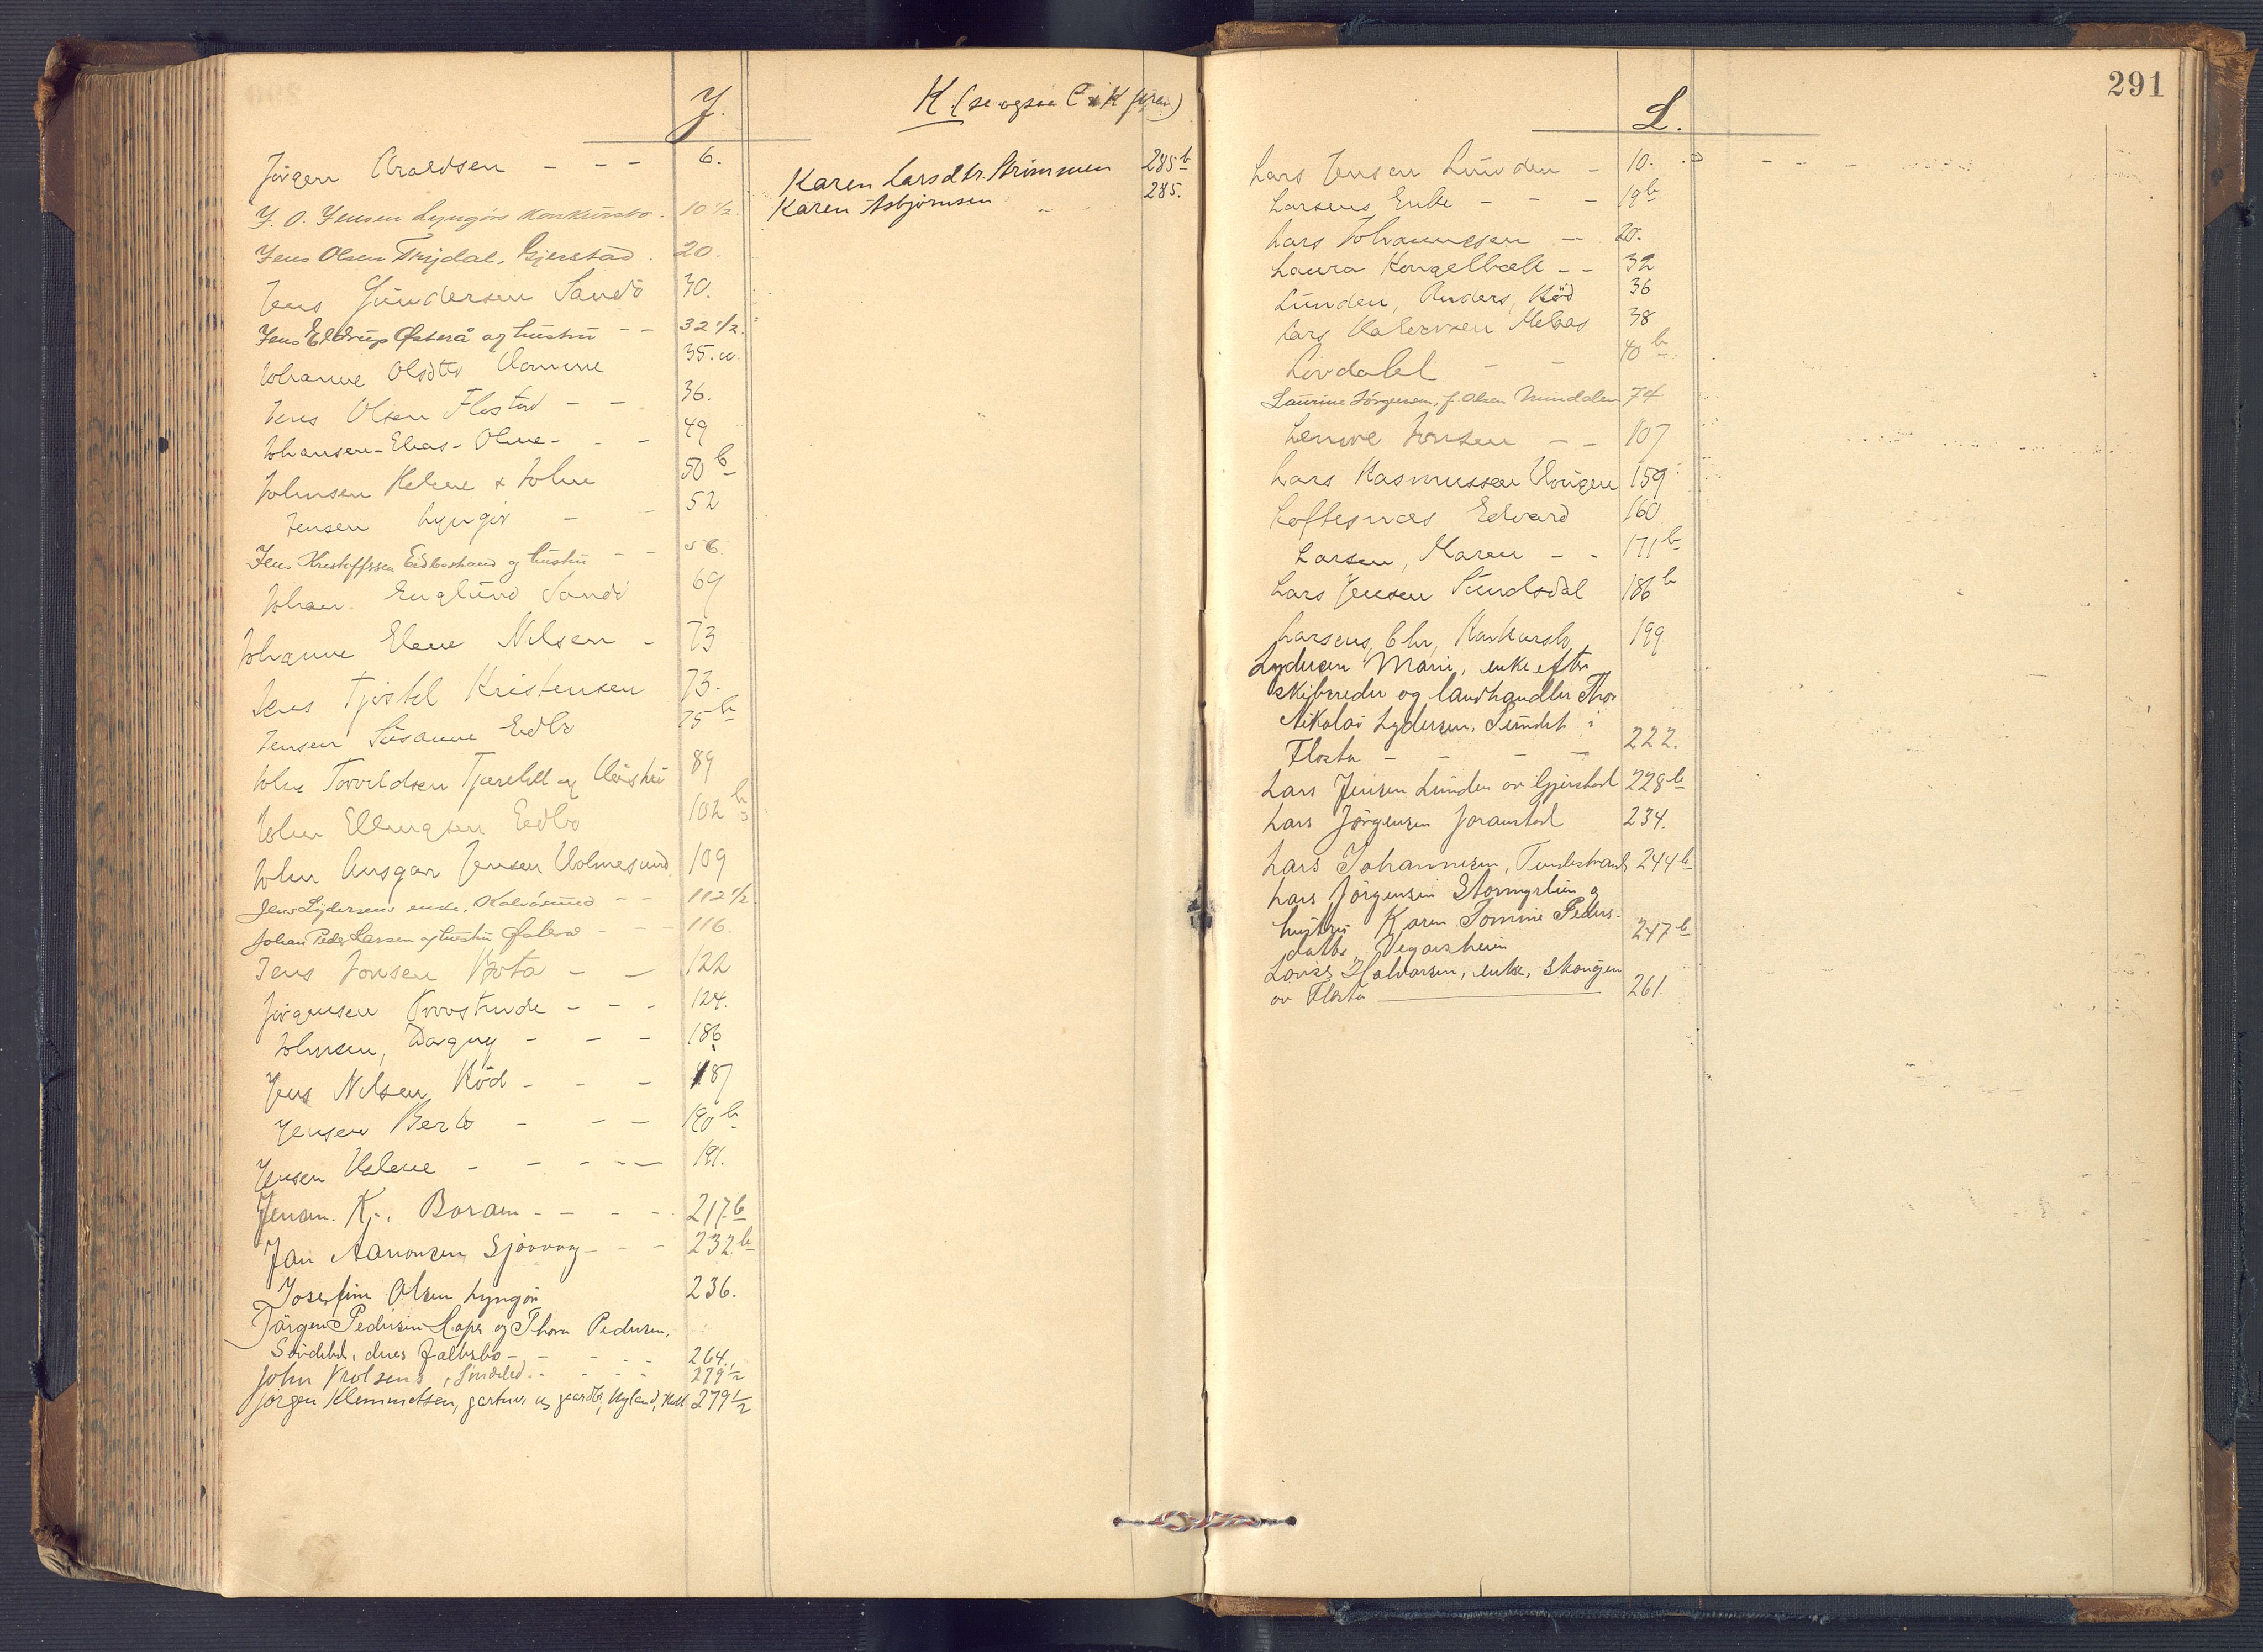 J.
Jörgen Araldsen - - - 6.
J. O. Jensen Lyngörs konkursbo. 10 1/2.
Jens Olsen Trydal, Gjerstad. 20.
Jens Gundersen Sandö 30.
Jens Eldrup Österå og hustru - - 32 1/2.
Johanne Olsdtr 35.
Jens Olsen Flostad - - 36.
Johansen - Elias - Oline - - - 49
Johnsen Helene & John 50 b
Jensen Lyngör - - 52
Jens Kristoffssen Eidbostrand og hustru - - 56
Johan Englund Sandö 69
Johanne Elene Nilsen - 73
Jens Tjöstel Kristensen 73.
Jensen Susanne Eidbo 75 b
John Torvildsen Tjæreli og 89
John Ellingsen Eidbo 102 b
John Ansgar Jensen Holmesund 109
Jens Lydersens enke, Kalvösund - - 112 1/2
Johan Peder Larsen og hustru Österå - - - 116.
Jens Jonsen Bota - - 122
Jörgensen Provstrude - - - 124.
Johnsen, Dagny - - - 186
Jens Nilsen Röd - - - 187
Jensen Berte - - - 190 b
Jensen Halene - - - - - 191.
Jensen K. Boraas - - - - 217 b
Jan Aanonsen Sjövaag - - - 232 b
Josefine Olsen Lyngör 236.
Jörgen Pedersen Hope og Thora Pedersen,
Söndeled, deres fællesbo - - - - - 264.
John Nrolsens, Söndeled. - - - - 279 1/2
Jörgen Klemmetsen, gartner og gaardbr, Myland, Holt 279 1/2
K. (se ogsaa C & K foran)
Karen Larsdtr. Strömmen 285 b
Karen Asbjörnsen - - 285.
291
L.
Lars Jensen Lunden - 10.
Larsens Enke - - - 19 b
Lars Johannessen - 20.
Laura Kongelbæk - - 32
Lunden, Anders, Röd 36
Lars Halvorsen Melaas 38
Lövdalel - - 40 b
Laurine Jörgensen, f. Olsen Mindalen 74
Lenvre Jonsen - - 107
Lars Rasmussen Vringen 159
Loftesnæs Edvard 160
Larsen, Maren - - 171 b
Lars Jensen Sundsdal 186 b
Larsens, Chr, Konkursbo, 199
Lydersen Marie, enke efter
skibsreder og landhandler Thor
Nikolai Lydersen, Sundet i
Flosta - - - - 222.
Lars Jensen Lunden av Gjerstad 228 b
Lars Jörgensen Joranstad 234.
Lars Johannesen, Tvedestrand, 244 b
Lars Jörgensen Stormyrlien og
hustru Karen Tomine Peders-
datter, Vegarsheien 247 b
Lovise Halvorsen, enke, Skougen
av Flosta 261.